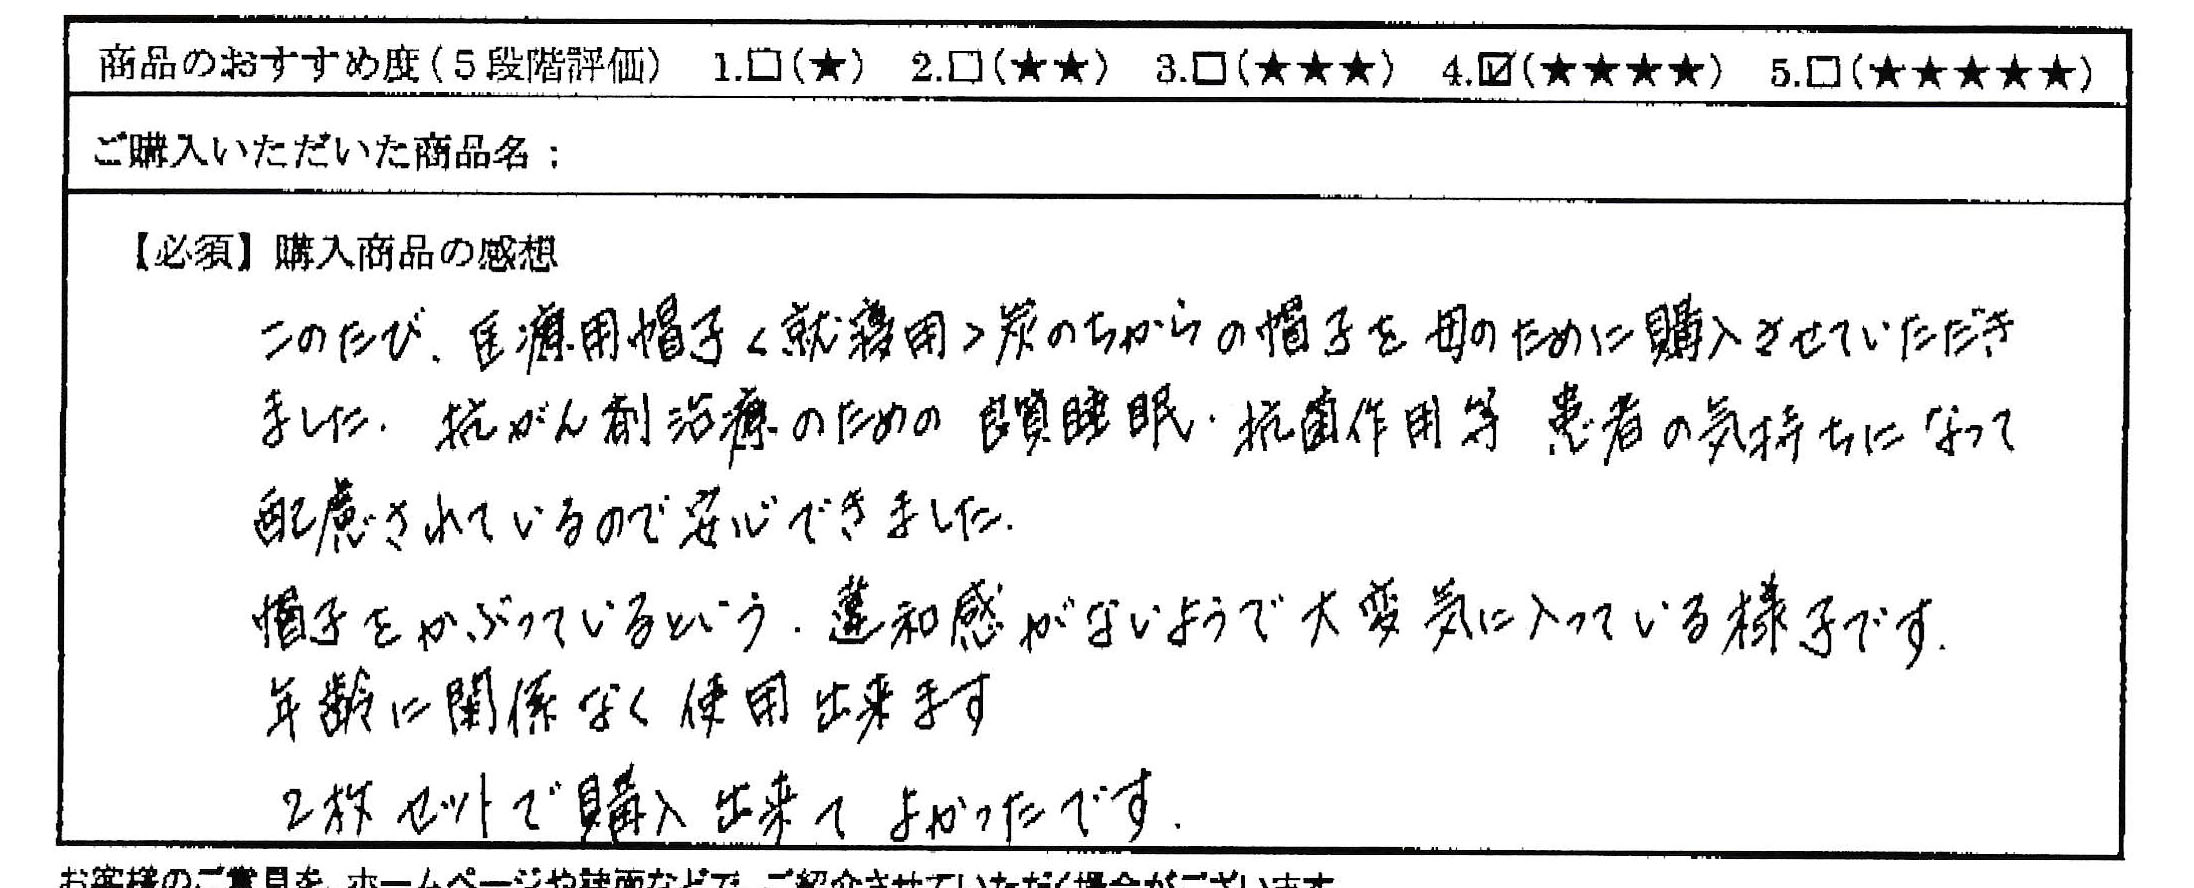 商品のおすすめ度(5段階評価) 1.□(★) 2.□(★★) 3.□(★★★) 4.☑(★★★★) 5.□(★★★★★)
ご購入いただいた商品名:
【必須】購入商品の感想
このたび、医療用帽子<就寝用>炭のちからの帽子を母のために購入させていただき
ました. 抗がん剤治療のための良質睡眠・抗菌作用等 患者の気持ちになって
配慮されているので安心できました.
帽子をかぶっているという. 違和感がないようで大変気に入っている様子です.
年齢に関係なく使用出来ます
2枚セットで購入出来てよかったです.
お客様のご意見を、ホームページや誌面などで、ご紹介させていただく場合がございます